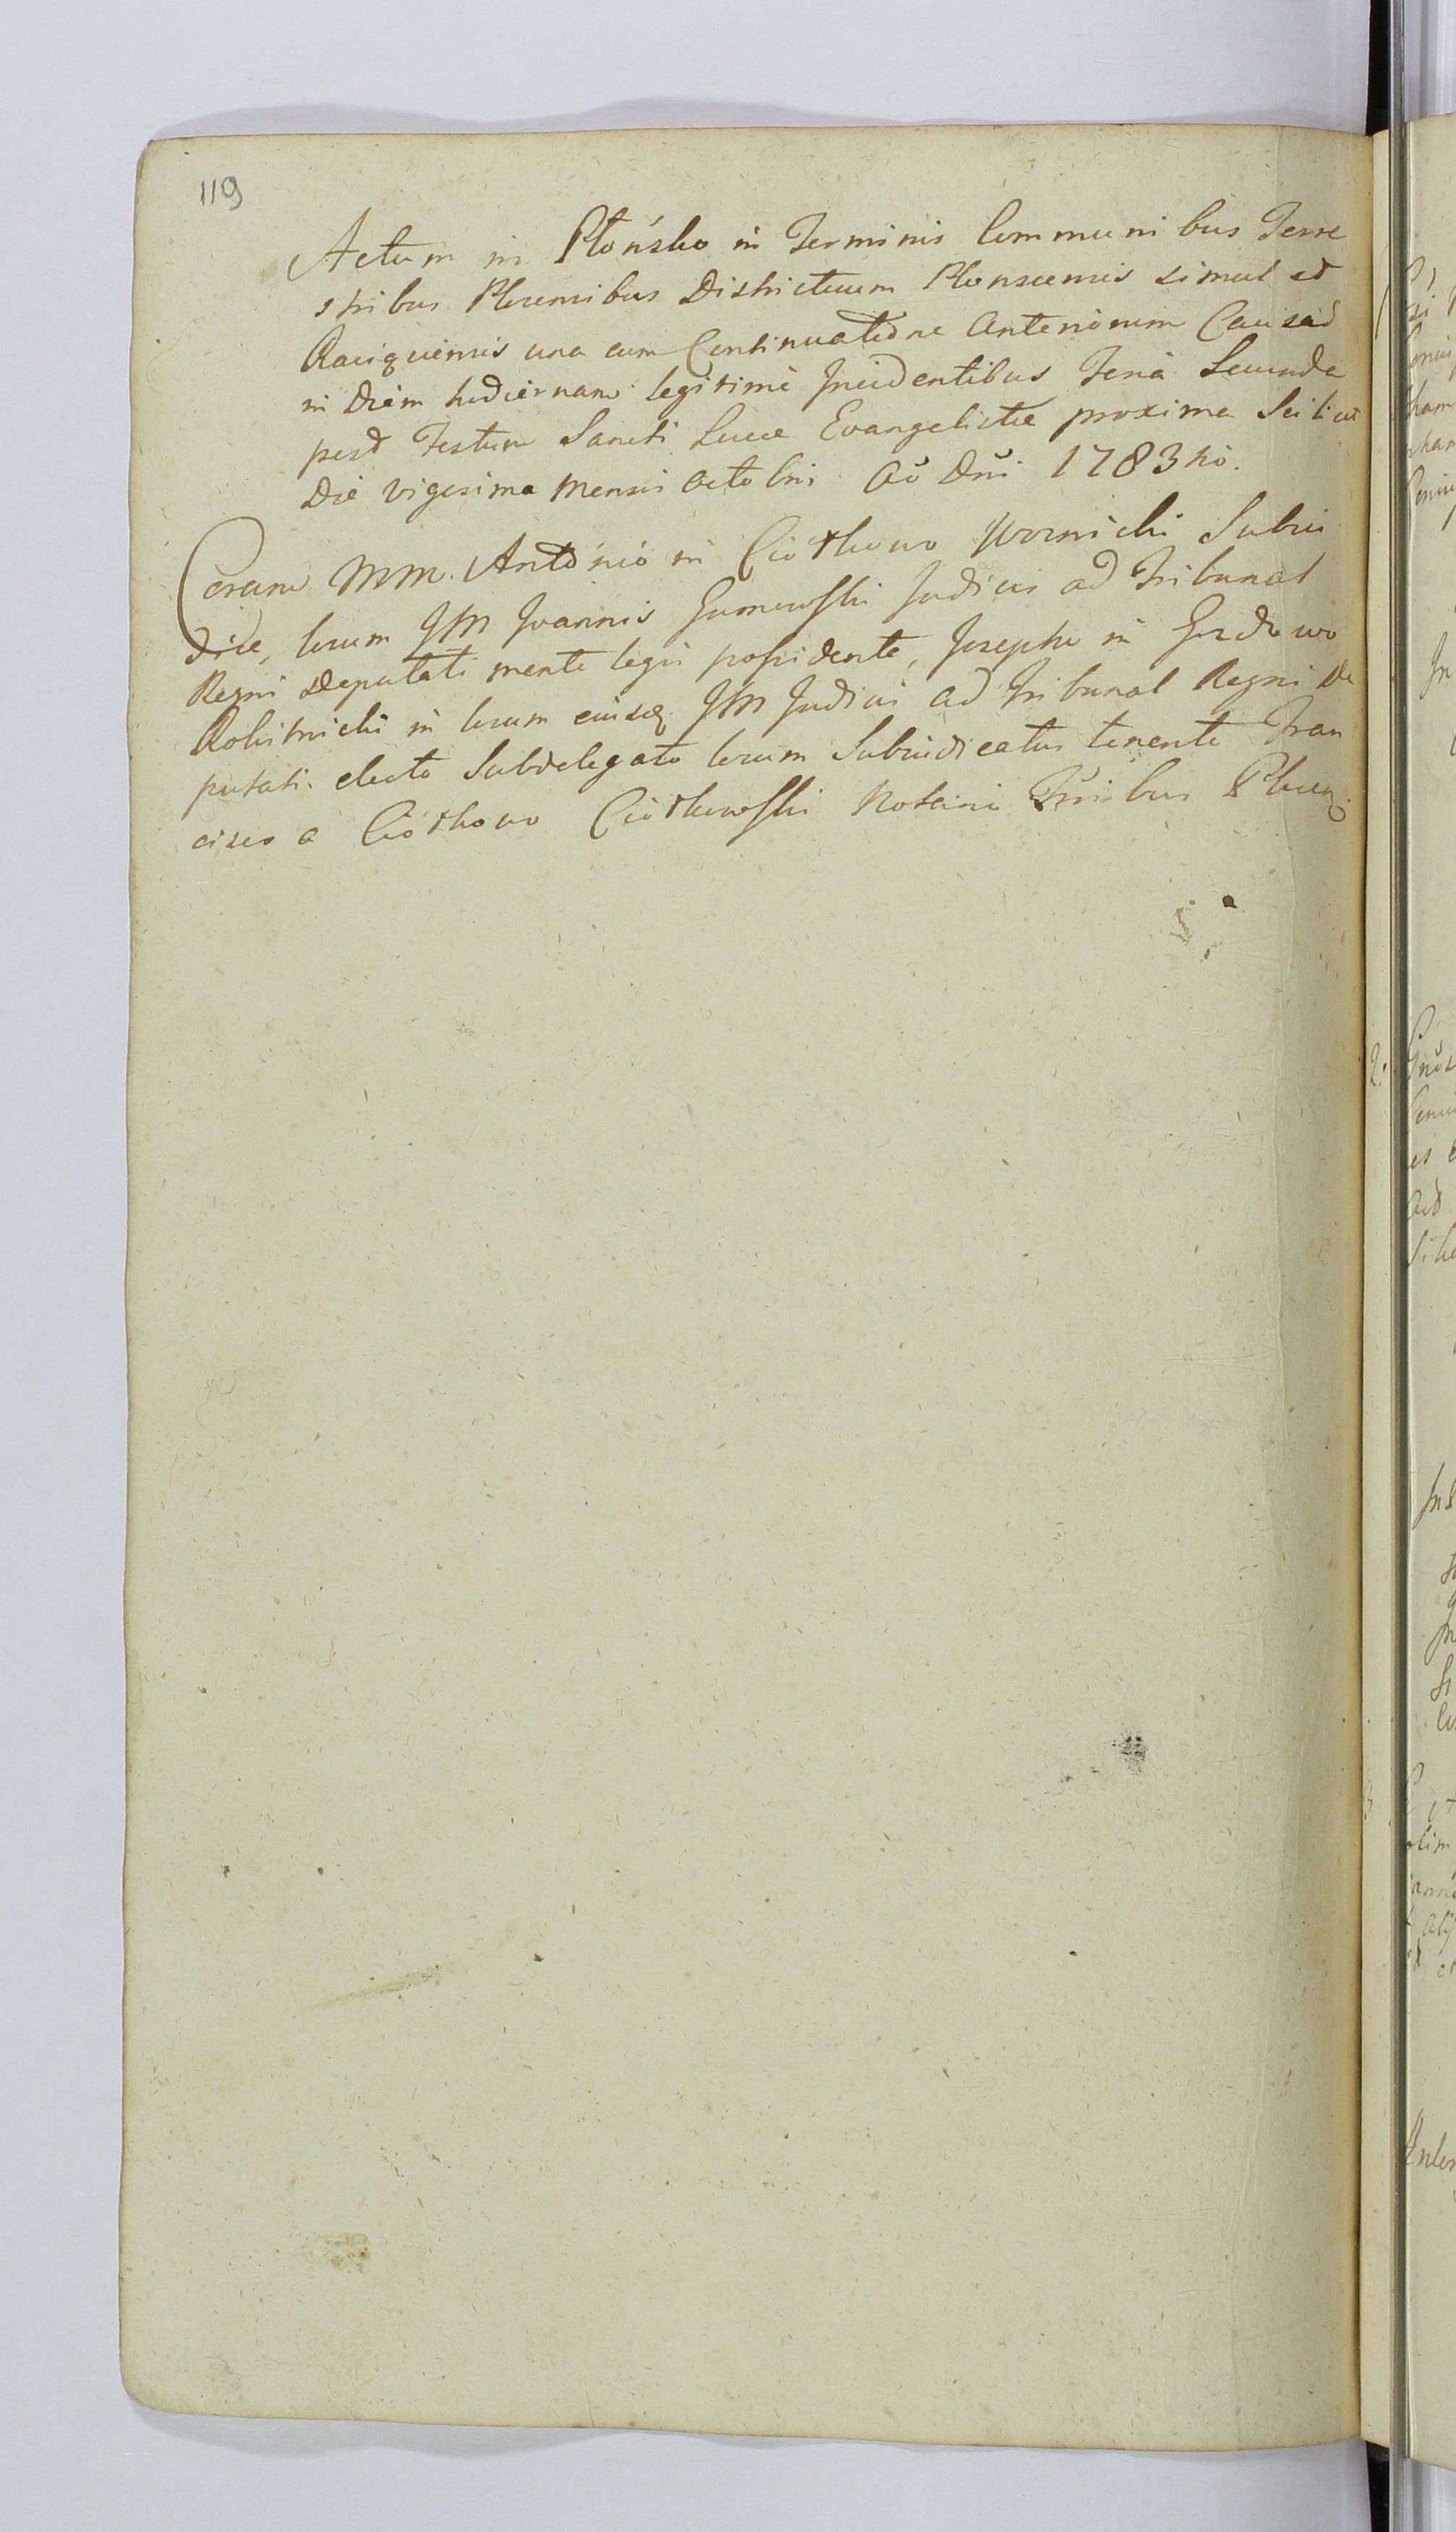 119
Actum in Płońsko in Terminis Communibus Terre
stribus Plocensibus Districtuum Plonscensis simul et
Raciązensis una cum Continuatione Anteriorum Causar
in Diem hodiernam legitime Incidentibus Feria Secunda
post Festum Sancti Lucæ Evangelistæ proxima Scilicet
Die vigesima Mensis Octobris Ao Dni 1783tio.
Coram MM. Antonio in Ciołkowo Subiu
dice, locum JM Joannis Judicis ad Tribunal
Regni Deputati mente legis possidente, Josepho in
Rokitnicki in locum eiusq JM Judicis ad Tribunal Regni De
putati electo Subdelegato locum Subiudicatus tenente Fran
cisco a Ciołkowo Ciołkowski Notario Tribus Plocen